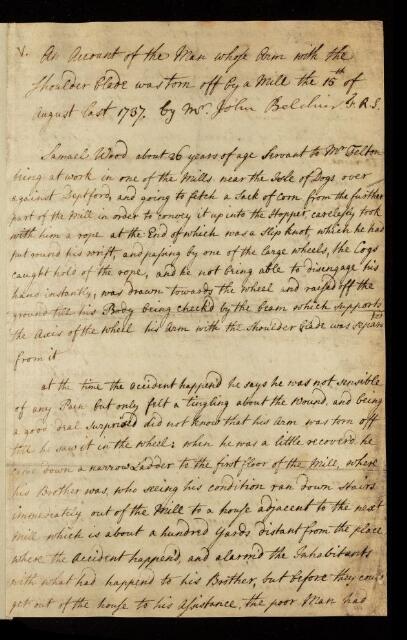 V. An Account of the Man whose Arm with the
Shoulder blade was torn off by a Mill the 15th of
August last 1737. by Mr. John Belchier F.R.S.
Samuel Wood about 26 years of age Servant to Mr Felton
being at work in one of the Mills near the Isle of Dogs over
against Deptford, and going to fetch a Sack of Corn from the further
part of the Mill in order to convey it up into the Hopper, carelessly took
with him a rope at the End of which was a slip knot, which he had
put round his wrist, and passing by one of the large wheels, the Cogs
caught hold of the rope, and he not being able to disengage his
hand instantly, was drawn towards the wheel and raised off the
ground till his Body being checked by the beam which supports
the Axis of the wheel his Arm with the Shoulder blade was separated
from it
at the time the accident happend he says he was not sensible
of any Pain but only felt a tingling about the Wound, and being
a good deal Surprised did not know that his Arm was torn off
till he saw it in the wheel: when he was a little recoverd he
came down a narrow Ladder to the first floor of the Mill, where
his Brother was, who seeing his condition ran down Stairs
immediately out of the Mill to a house adjacent to the next
Mill which is about a hundred Yards distant from the place
where the Accident happend, and alarmd the Inhabitants
with what had happend to his Brother, but before they could
get out of the house to his Assistance, the poor Man had